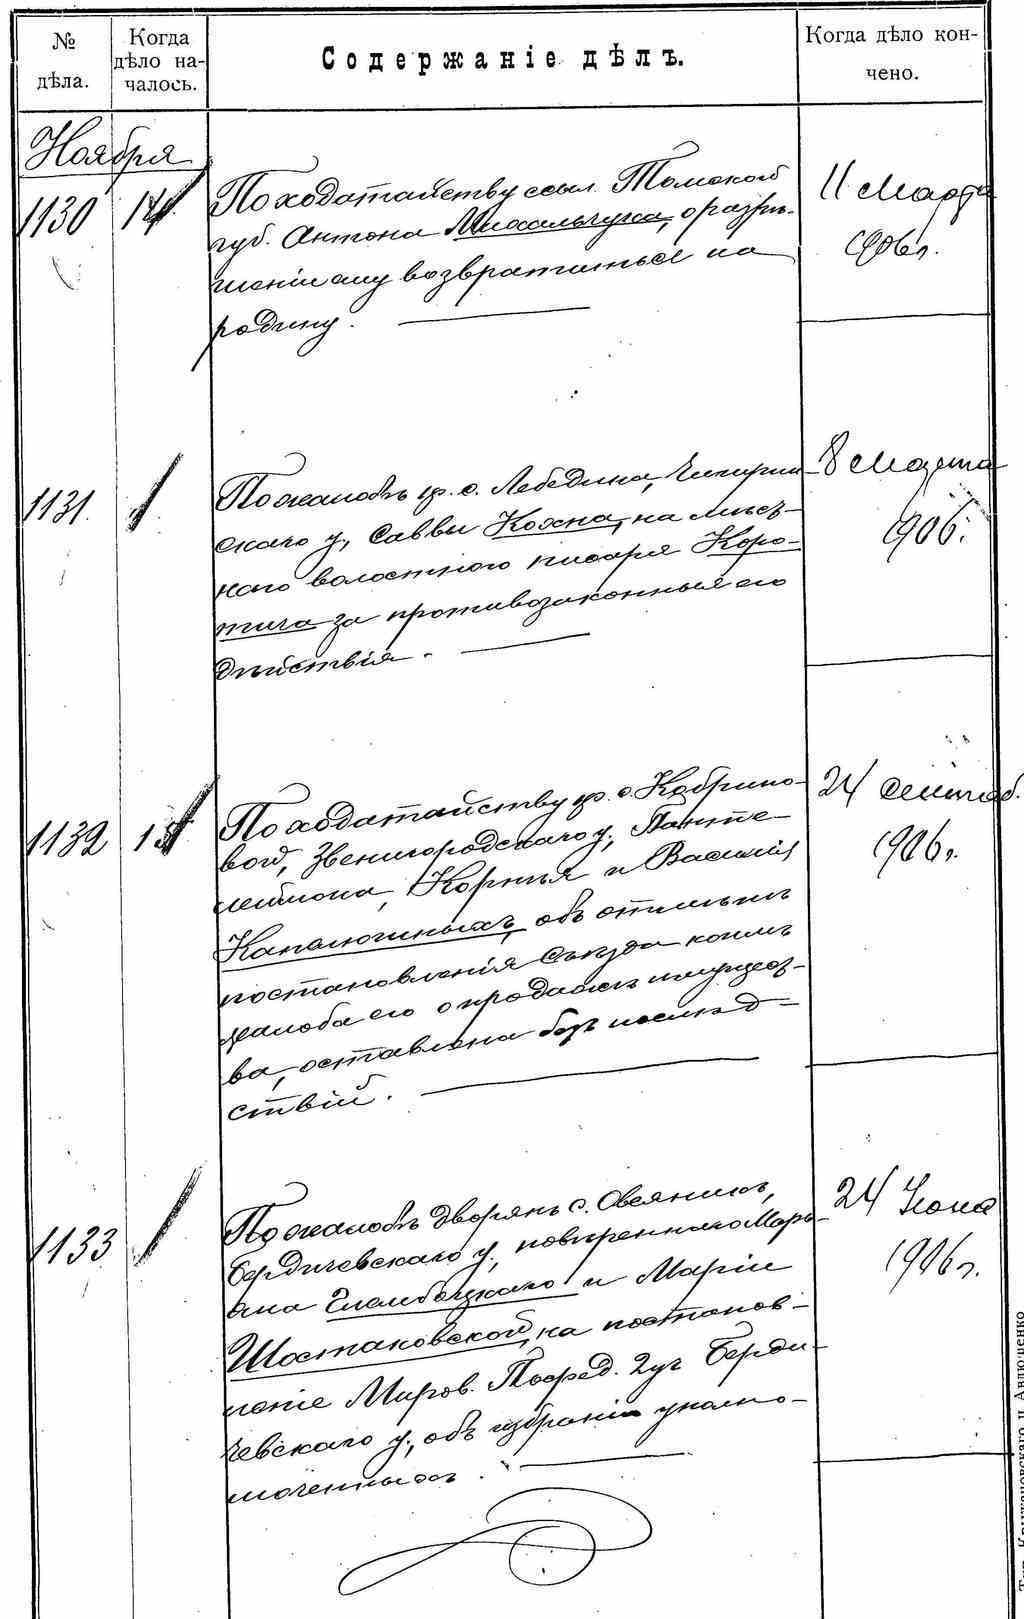 № дѣла.
Когда дѣло на-
чалось.
Содержаніе дѣлъ.
Когда дѣло кон-
чено.
Ноября
1130 14
По ходатайству ссыл. Томской
губ. Антона Михальчука, о разрѣ-
шеніи ему возвратиться на
родину.
11 Марта
1906 г.
1131
По жалобѣ кр. с. Лебедина, Чигирин-
скаго у., Саввы Кохна, на мѣст-
наго волостного писаря Коро-
тича за противозаконныя его
дѣйствія.
8 Марта
1906.
1132 15
По ходатайству кр. с. Кобрино-
вой, Звенигородскаго у., Панте-
леймона, Корнѣя и Василія
об отмѣнѣ
постановленія Съѣзда коимъ
жалоба его о продажѣ имущес-
ва, оставлена безъ послѣд-
ствій.
24 Сентяб.
1906 г.
1133
По жалобѣ дворянъ с. Овсяникъ,
Бердичевскаго у., повѣреннаго Марь-
яна и Маріи
Шостаковской, на постанов-
леніе Миров. Посред. 2 уч. Берди-
чевскаго у., объ избраніи уполно-
моченныхъ.
24 Іюня
1906 г.